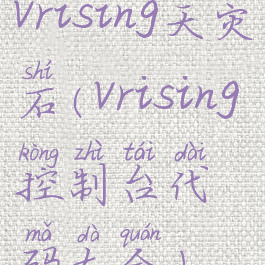 Vrising天灾
shí
石(Vrising
kòng zhì tái dài
控制台代
mǎ dà quán
码大全)